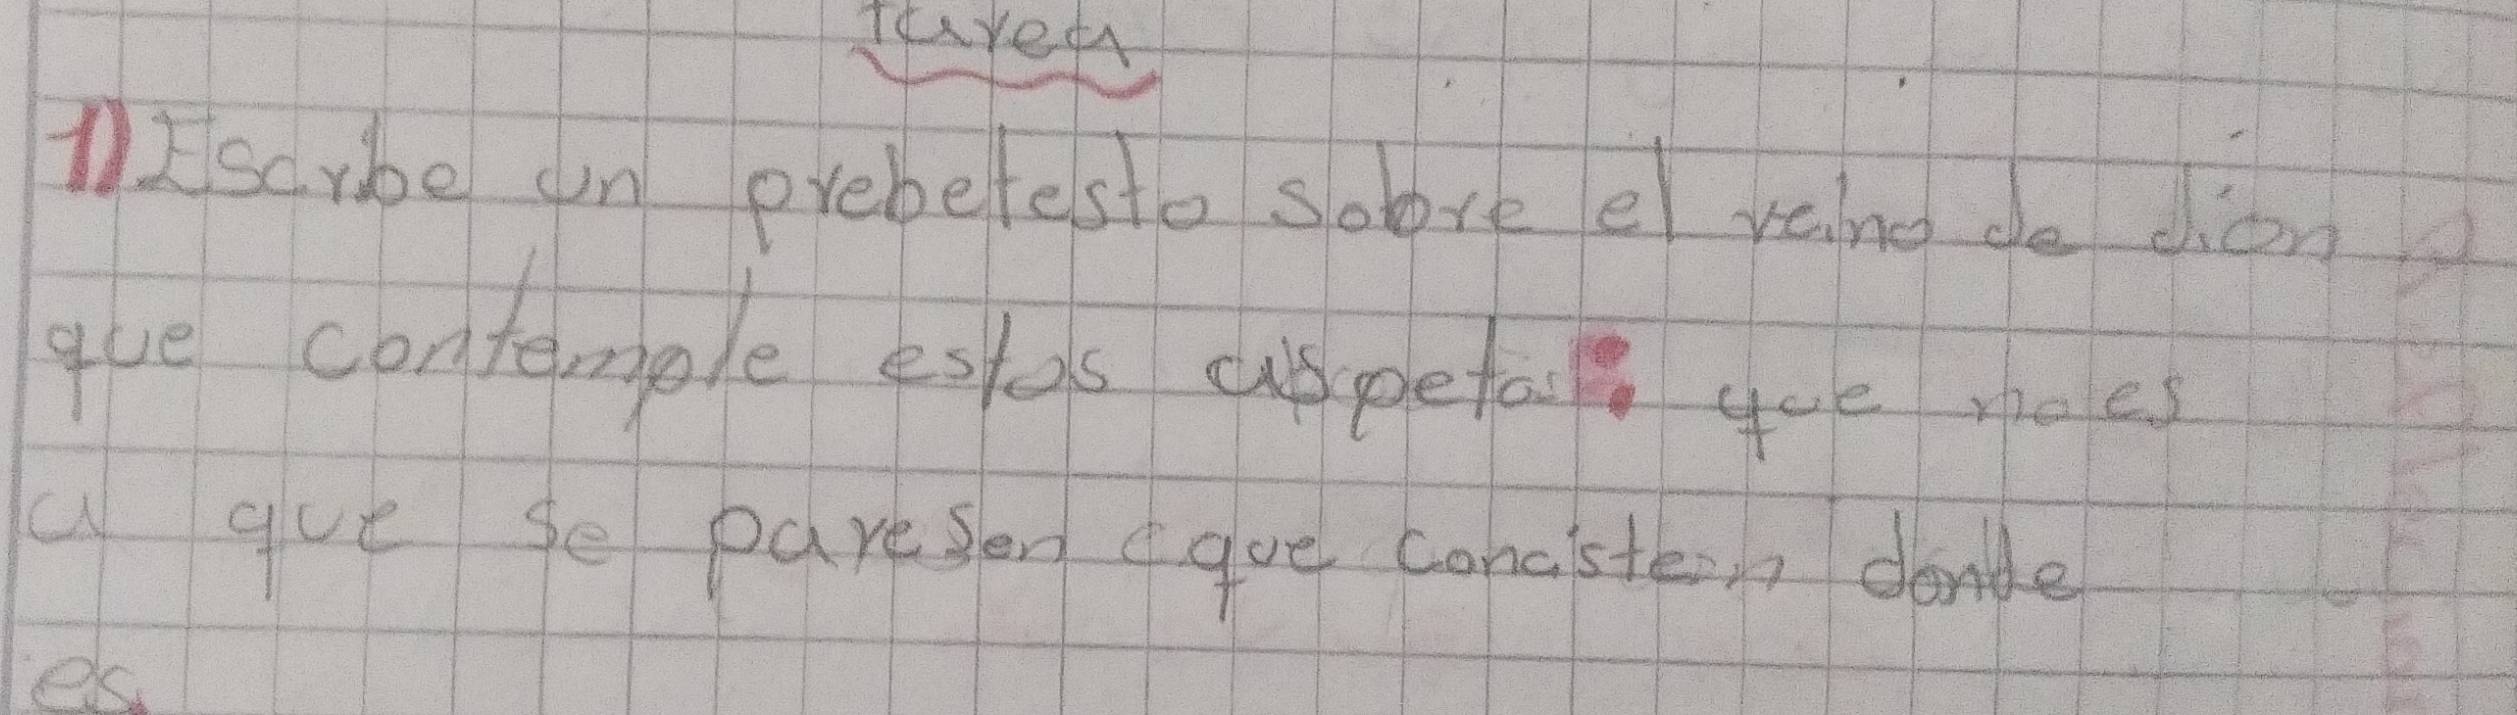 tarea
1) Escribe un prebetesto sobre el reino de dion
que contemple estos aspetos: que no es
a que se paresen eque concisten donde
es.